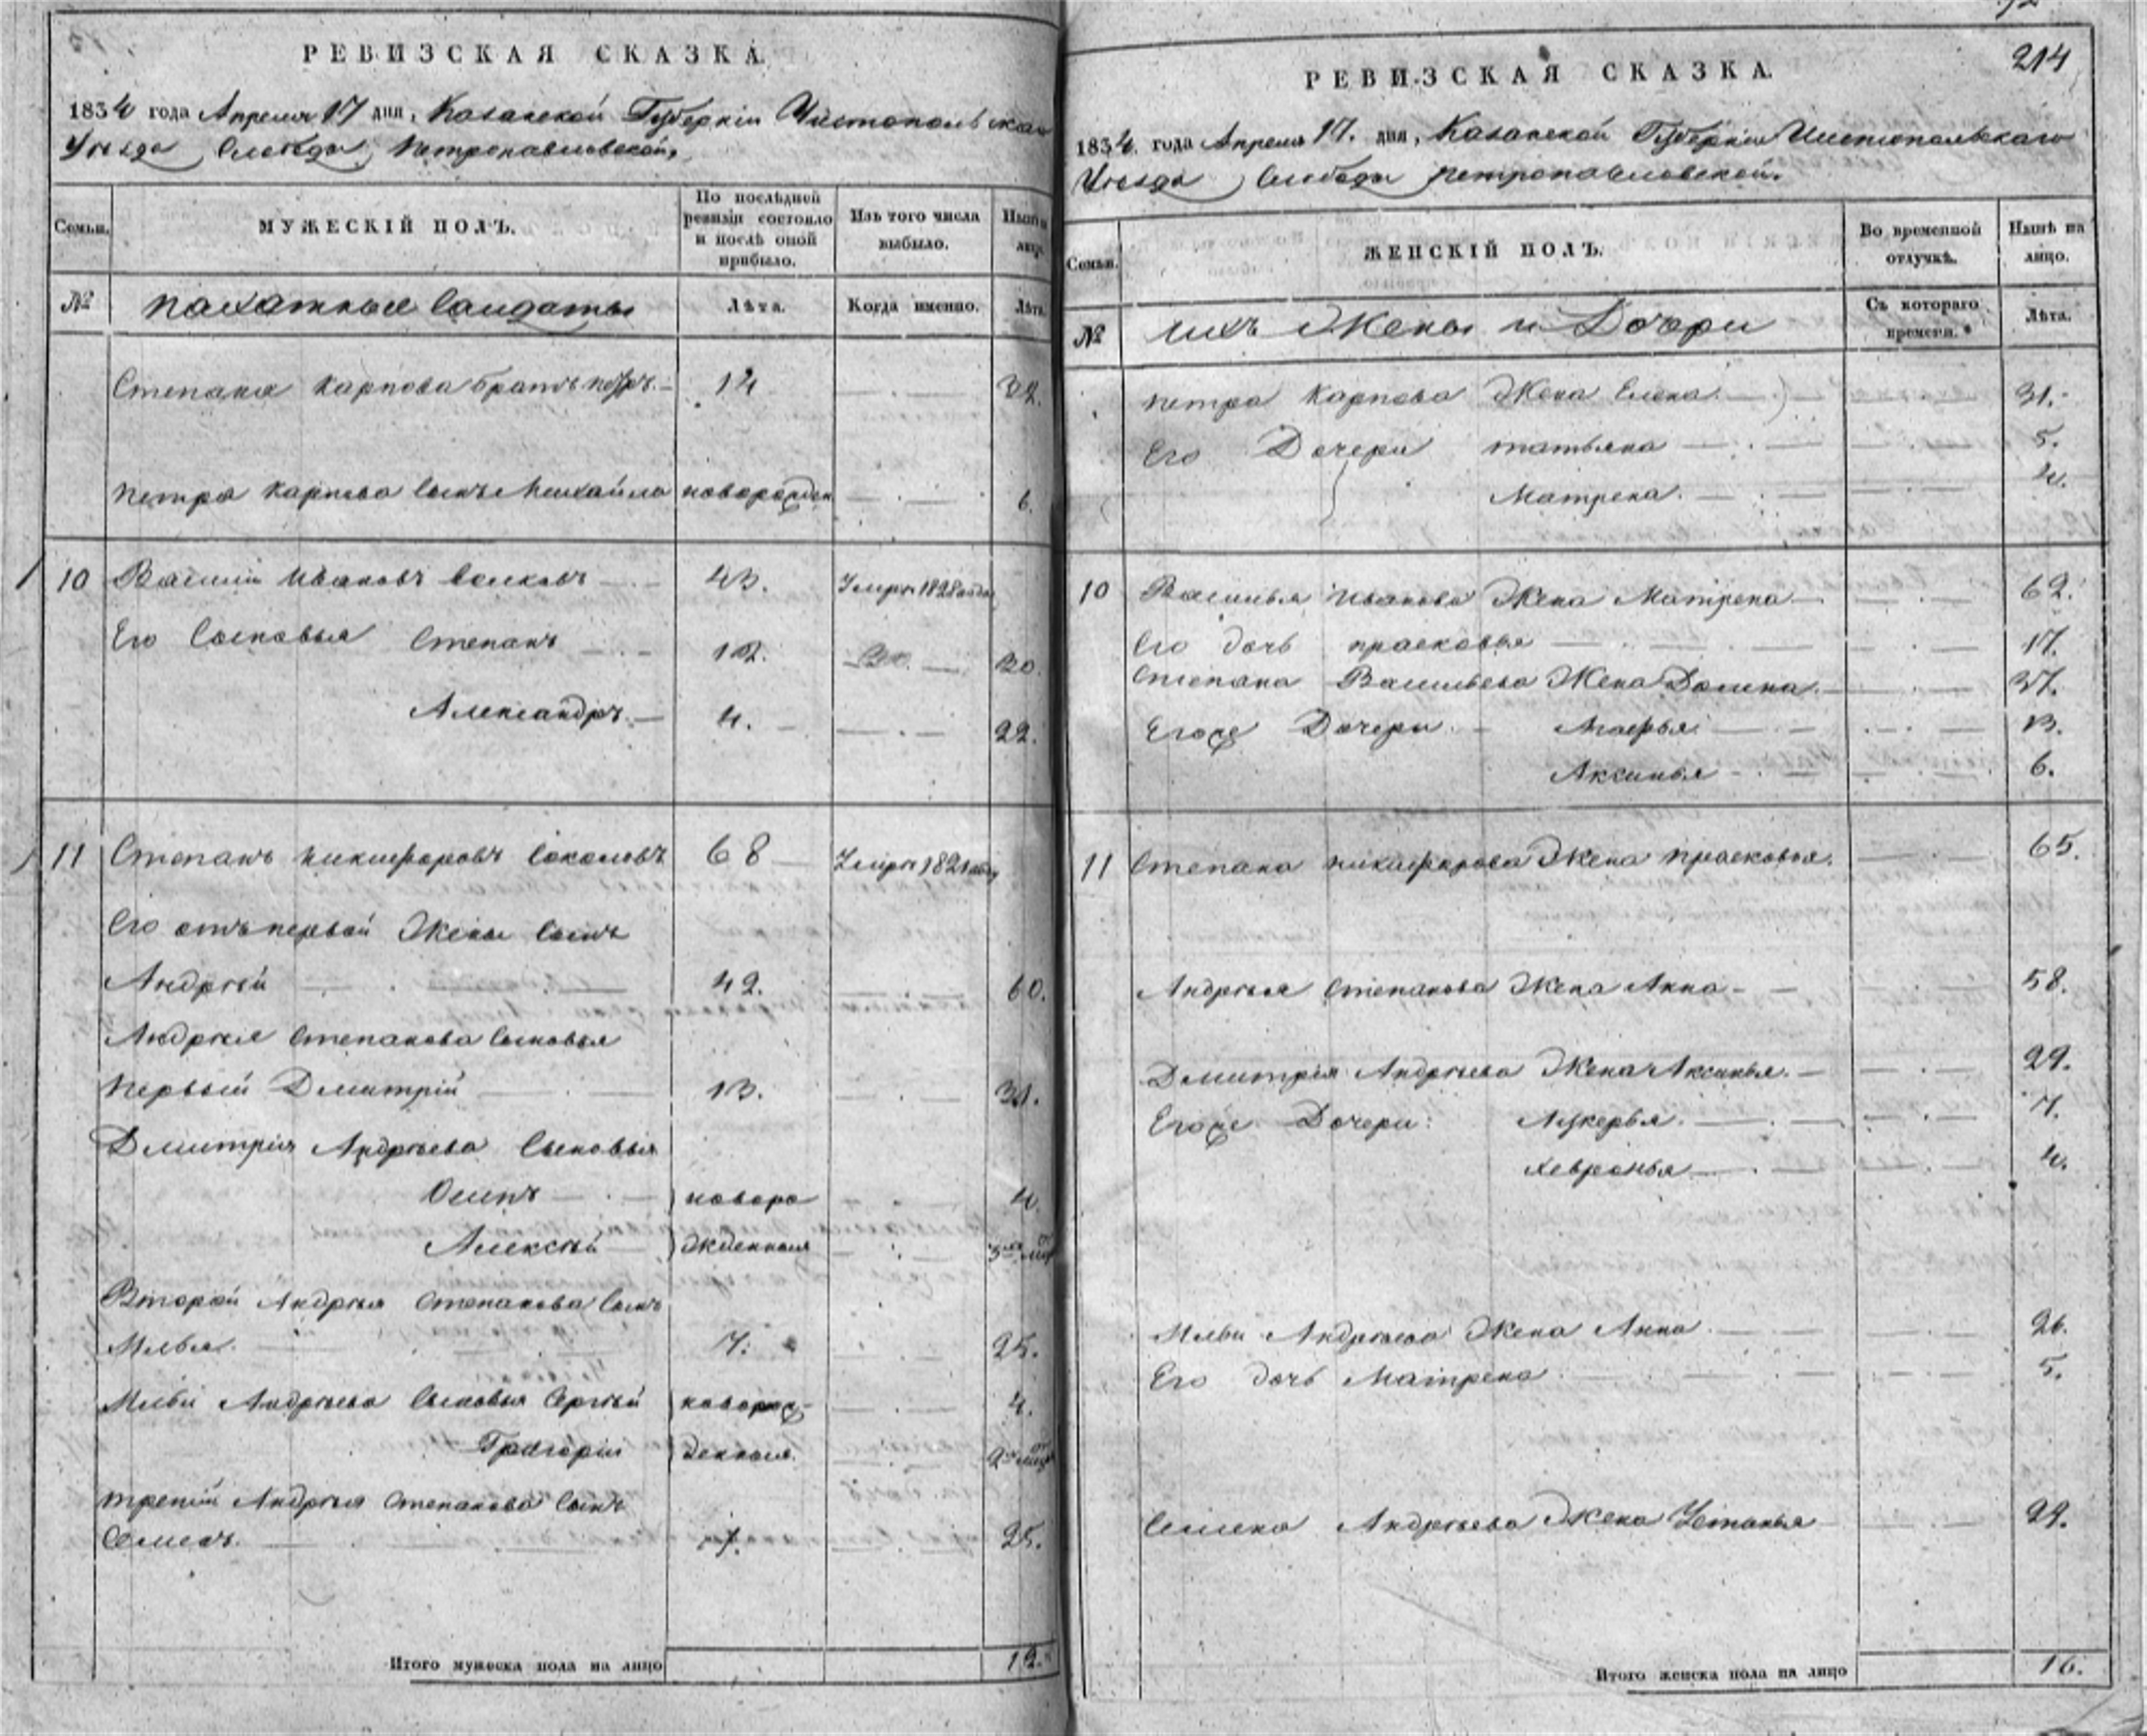 РЕВИЗСКАЯ СКАЗКА.
1834 года Апреля 17 дня, Казанской Губернiи Чистопольскаго
Уѣзда Слободы Петропавловской,
Семьи.
МУЖЕСКІЙ ПОЛЪ.
По послѣдней ревизіи состояло и послѣ оной прибыло.
Изъ того числа выбыло.
Нынѣ на лицо.
№
пахатные Солдаты
Лѣта.
Когда именно.
Лѣта.
Степана Карпова братъ петръ. 14 32.
петра Карпова Сынъ Михайло новорожден 6.
10 Василий Ивановъ Волковъ 43. Умеръ 1828 года
Его Сыновья Степанъ 12. 30.
Александръ. 4. 22.
11 Степанъ никифоровъ Соколовъ 68 Умеръ 1821 году
Его отъ первой Жены Сынъ
Андрѣй 42. 60.
Андрѣя Степанова Сыновья
первый Дмитрій 13. 31.
Дмитрія Андрѣева Сыновья
Осипъ новоро 4.
Алексѣй жденныя
Второй Андрѣя Степанова Сынъ
Илья. 7. 25.
Ильи Андрѣева Сыновья Сергѣй новорож- 4.
Григорій денныя.
третій Андрѣя Степанова Сынъ
Семенъ. 7. 25.
Итого мужеска пола на лицо 12.
214
РЕВИЗСКАЯ СКАЗКА.
1834. года Апреля 17. дня, Казанской Губернiи Чистопольскаго
Уѣзда Слободы петропавловской.
Семьи.
ЖЕНСКІЙ ПОЛЪ.
Во временной отлучкѣ.
Нынѣ на лицо.
№
ихъ Жены и Дочери
Съ котораго времени.
Лѣта.
петра Карпова Жена Елена. 31.
Его Дочери татьяна 5.
Матрена. 4.
10 Василья Иванова Жена Матрена 62.
Его дочь прасковья 17.
Степана Васильева Жена Домна. 37.
Егоже Дочери Марья 13.
Аксинья 6.
11 Степана никифорова Жена прасковья. 65.
Андрѣя Степанова Жена Анна 58.
Дмитрія Андрѣева Жена Аксинья. 29.
Егоже Дочери: Лукерья. 7.
Хевронья 4.
Ильи Андрѣева Жена Анна 26.
Его дочь Матрена 5.
Семена Андрѣева Жена Устинья 29.
Итого женска пола на лицо 16.